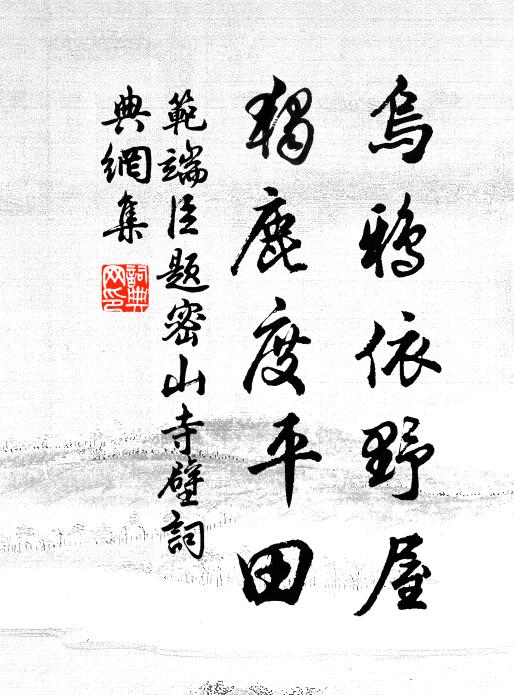 烏鴉依野屋
獨鹿度平田
範端臣題密山寺壁詞
典網集
詞典網印